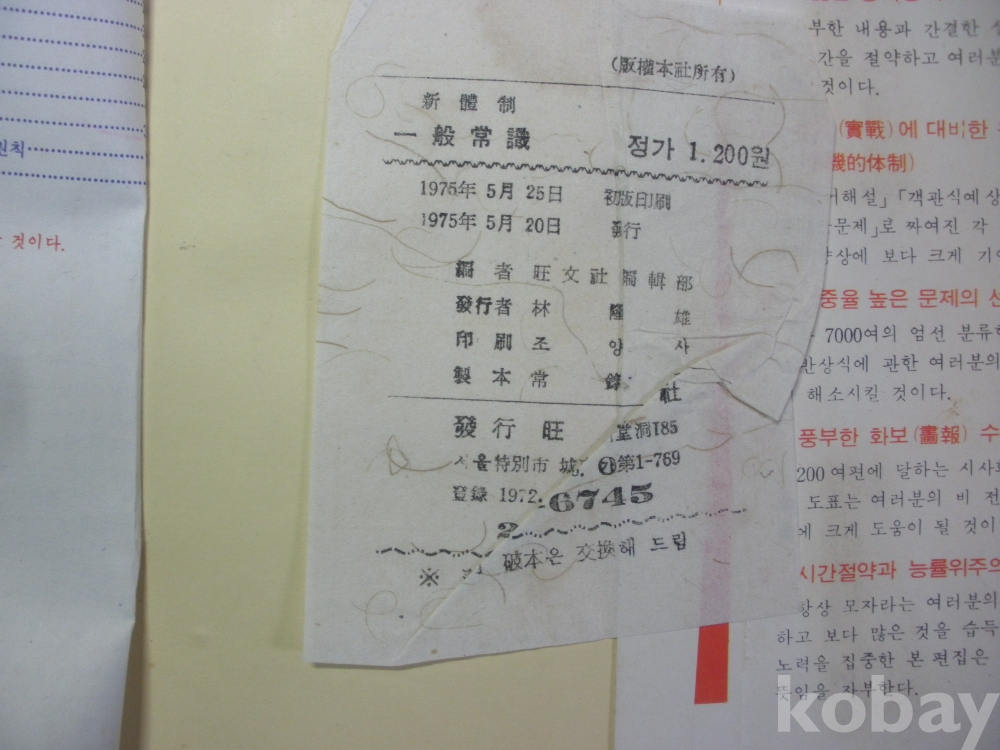 원칙
것이다.
(版權本社所有)
新體制
一般常識 정가 1.200원
1975年 5月 25日 初版印刷
1975年 5月 20日 發行
編者 旺文社 編輯部
發行者 林隆雄
印刷 조양사
製本 常錄社
發行 旺
堂洞185
서울特別市 城
㉮第1-769
登錄 1972.
6745
2
※ 破本은 交換해 드립
부한 내용과 간결한
간을 절약하고 여러분
것이다.
(實戰)에 대비한
機的体制)
해설」「객관식예상
문제」로 짜여진 각
상에 보다 크게 기
중율 높은 문제의
7000여의 엄선 분류
반상식에 관한 여러분의
해소시킬 것이다.
풍부한 화보(畵報) 수
200여편에 달하는 시사
도표는 여러분의 비 전
에 크게 도움이 될 것이
시간절약과 능률위주의
항상 모자라는 여러분의
하고 보다 많은 것을 습득
노력을 집중한 본 편집은
뜻임을 자부한다.
kobay